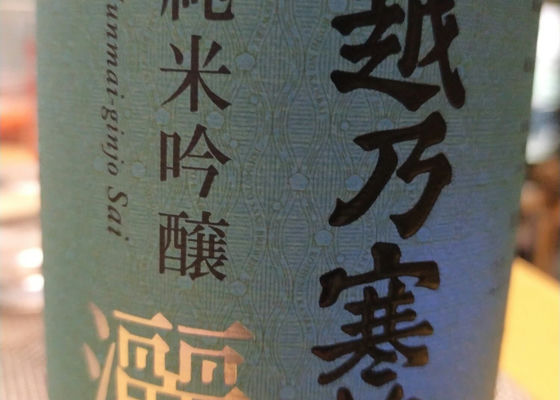 越乃寒
純米吟醸
灑
Junmai-ginjo Sai